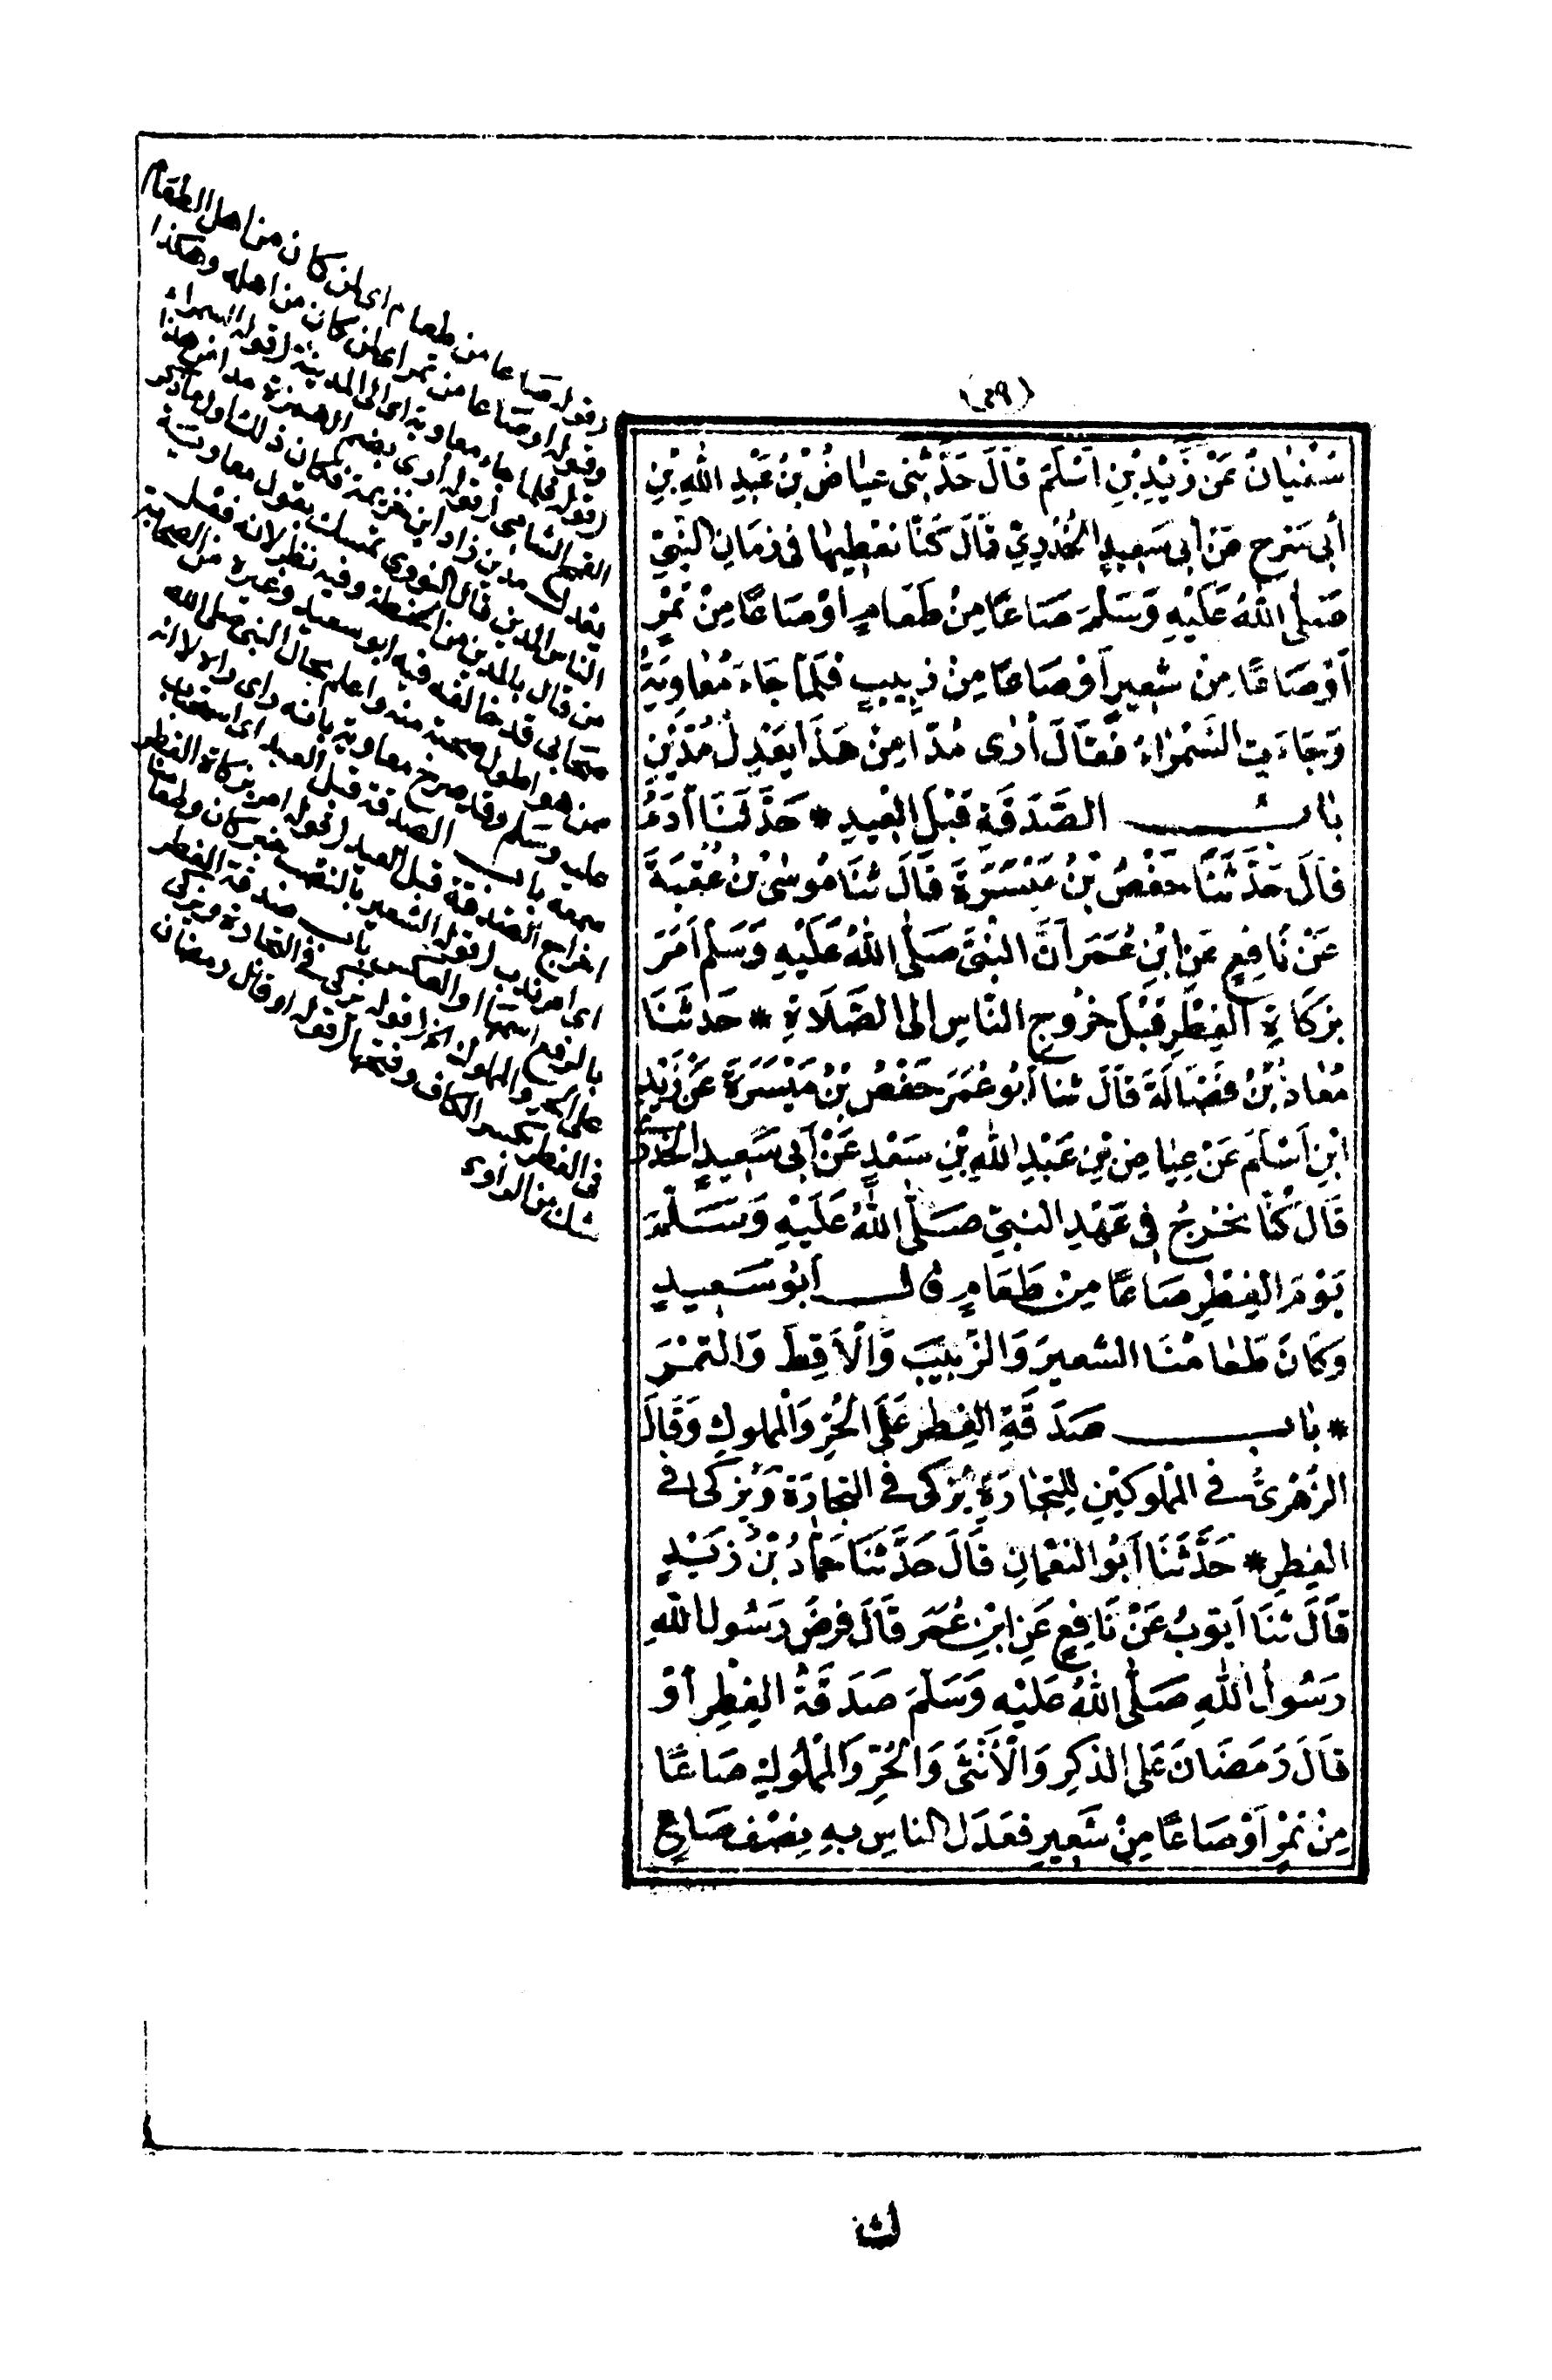 (٣٩)
سُفْيَانُ عَنْ زَيْدِ بْنِ أَسْلَمَ قَالَ حَدَّثَنِى عِيَاضُ بْنُ عَبْدِ اللهِ بْنِ
أَبِى سَرْحٍ عَنْ أَبِى سَعِيدٍ الْخُدْرِىِّ قَالَ كُنَّا نُعْطِيهَا فِى زَمَانِ النَّبِىِّ
صَلَّى اللهُ عَلَيْهِ وَسَلَّمَ صَاعًا مِنْ طَعَامٍ أَوْ صَاعًا مِنْ تَمْرٍ
أَوْ صَاعًا مِنْ شَعِيرٍ أَوْ صَاعًا مِنْ زَبِيبٍ فَلَمَّا جَاءَ مُعَاوِيَةُ
وَجَاءَتِ السَّمْرَاءُ فَقَالَ أُرَى مُدًّا مِنْ هَذَا يَعْدِلُ مُدَّيْنِ
بَابُ الصَّدَقَةِ قَبْلَ الْعِيدِ * حَدَّثَنَا آدَمُ
قَالَ حَدَّثَنَا حَفْصُ بْنُ مَيْسَرَةَ قَالَ ثَنَا مُوسَى بْنُ عُقْبَةَ
عَنْ نَافِعٍ عَنِ ابْنِ عُمَرَ أَنَّ النَّبِىَّ صَلَّى اللهُ عَلَيْهِ وَسَلَّمَ أَمَرَ
بِزَكَاةِ الْفِطْرِ قَبْلَ خُرُوجِ النَّاسِ إِلَى الصَّلَاةِ * حَدَّثَنَا
مُعَاذُ بْنُ فَضَالَةَ قَالَ ثَنَا أَبُو عُمَرَ حَفْصُ بْنُ مَيْسَرَةَ عَنْ زَيْدِ
ابْنِ أَسْلَمَ عَنْ عِيَاضِ بْنِ عَبْدِ اللهِ بْنِ سَعْدٍ عَنْ أَبِى سَعِيدٍ الْخُدْرِىِّ
قَالَ كُنَّا نُخْرِجُ فِى عَهْدِ النَّبِىِّ صَلَّى اللهُ عَلَيْهِ وَسَلَّمَ
يَوْمَ الْفِطْرِ صَاعًا مِنْ طَعَامٍ قَالَ أَبُو سَعِيدٍ
وَكَانَ طَعَامَنَا الشَّعِيرَ وَالزَّبِيبَ وَالْأَقِطَ وَالتَّمْرَ
* بَابُ صَدَقَةِ الْفِطْرِ عَلَى الْحُرِّ وَالْمَمْلُوكِ وَقَالَ
الزُّهْرِىُّ فِى الْمَمْلُوكِينَ لِلتِّجَارَةِ يُزَكَّى فِى التِّجَارَةِ وَيُزَكَّى فِى
الْفِطْرِ * حَدَّثَنَا أَبُو النُّعْمَانِ قَالَ حَدَّثَنَا حَمَّادُ بْنُ زَيْدٍ
قَالَ ثَنَا أَيُّوبُ عَنْ نَافِعٍ عَنِ ابْنِ عُمَرَ قَالَ فَرَضَ رَسُولُ اللهِ
رَسُولُ اللهِ صَلَّى اللهُ عَلَيْهِ وَسَلَّمَ صَدَقَةَ الْفِطْرِ أَوْ
قَالَ رَمَضَانَ عَلَى الذَّكَرِ وَالْأُنْثَى وَالْحُرِّ وَالْمَمْلُوكِ صَاعًا
مِنْ تَمْرٍ أَوْ صَاعًا مِنْ شَعِيرٍ فَعَدَلَ النَّاسُ بِهِ نِصْفَ صَاعٍ
(قوله صاعا من طعام اى لمن كان من اهل الطعام
وقوله او صاعا من تمر اى لمن كان من اهله وهكذا
(قوله فلما جاء معاوية اى الى المدينة (قوله السمراء
القمح الشامى (قوله أرى بضم الهمزة مدا من هذا
يعدل مدين زاد ابن خزيمة فكان ذلك اول ما ذكر
الناس المدين قال النووى تمسك بقول معاوية
من قال بالمدين من الحنطة وفيه نظر لانه فعل
صحابى قد خالفه فيه ابو سعيد وغيره من الصحابة
ممن هو اطول صحبة منه واعلم بحال النبى صلى الله
عليه وسلم وقد صرح معاوية بانه راى رآه لا انه
سمعه باب الصدقة قبل العيد اى استحباب
اخراج الصدقة قبل العيد (قوله امر بزكاة الفطر
اى امر ندب (قوله الشعير بالنصب خبر كان وطعامنا
بالرفع اسمها او العكس باب صدقة الفطر
على الحر والمملوك الخ (قوله يزكى فى التجارة ويزكى
فى الفطر بكسر الكاف وفتحها (قوله او قال رمضان
شك من الراوى
ث